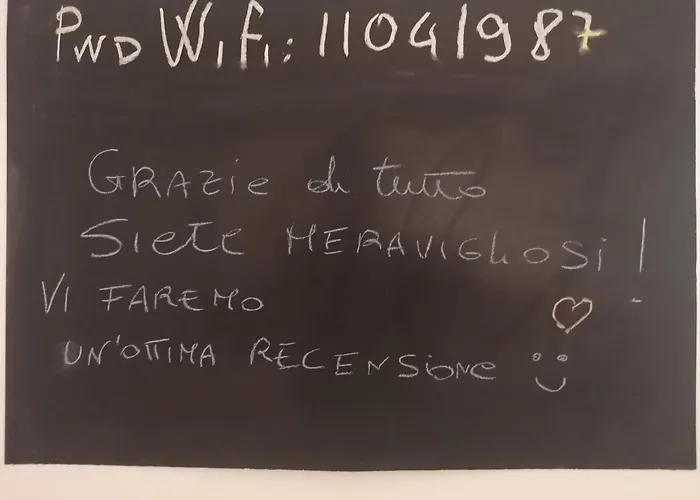 PWD WiFi: 11041987
GRAZIE di tutto
SIETE MERAVIGLIOSI!
VI FAREMO
UN'OTTIMA RECENSIONE